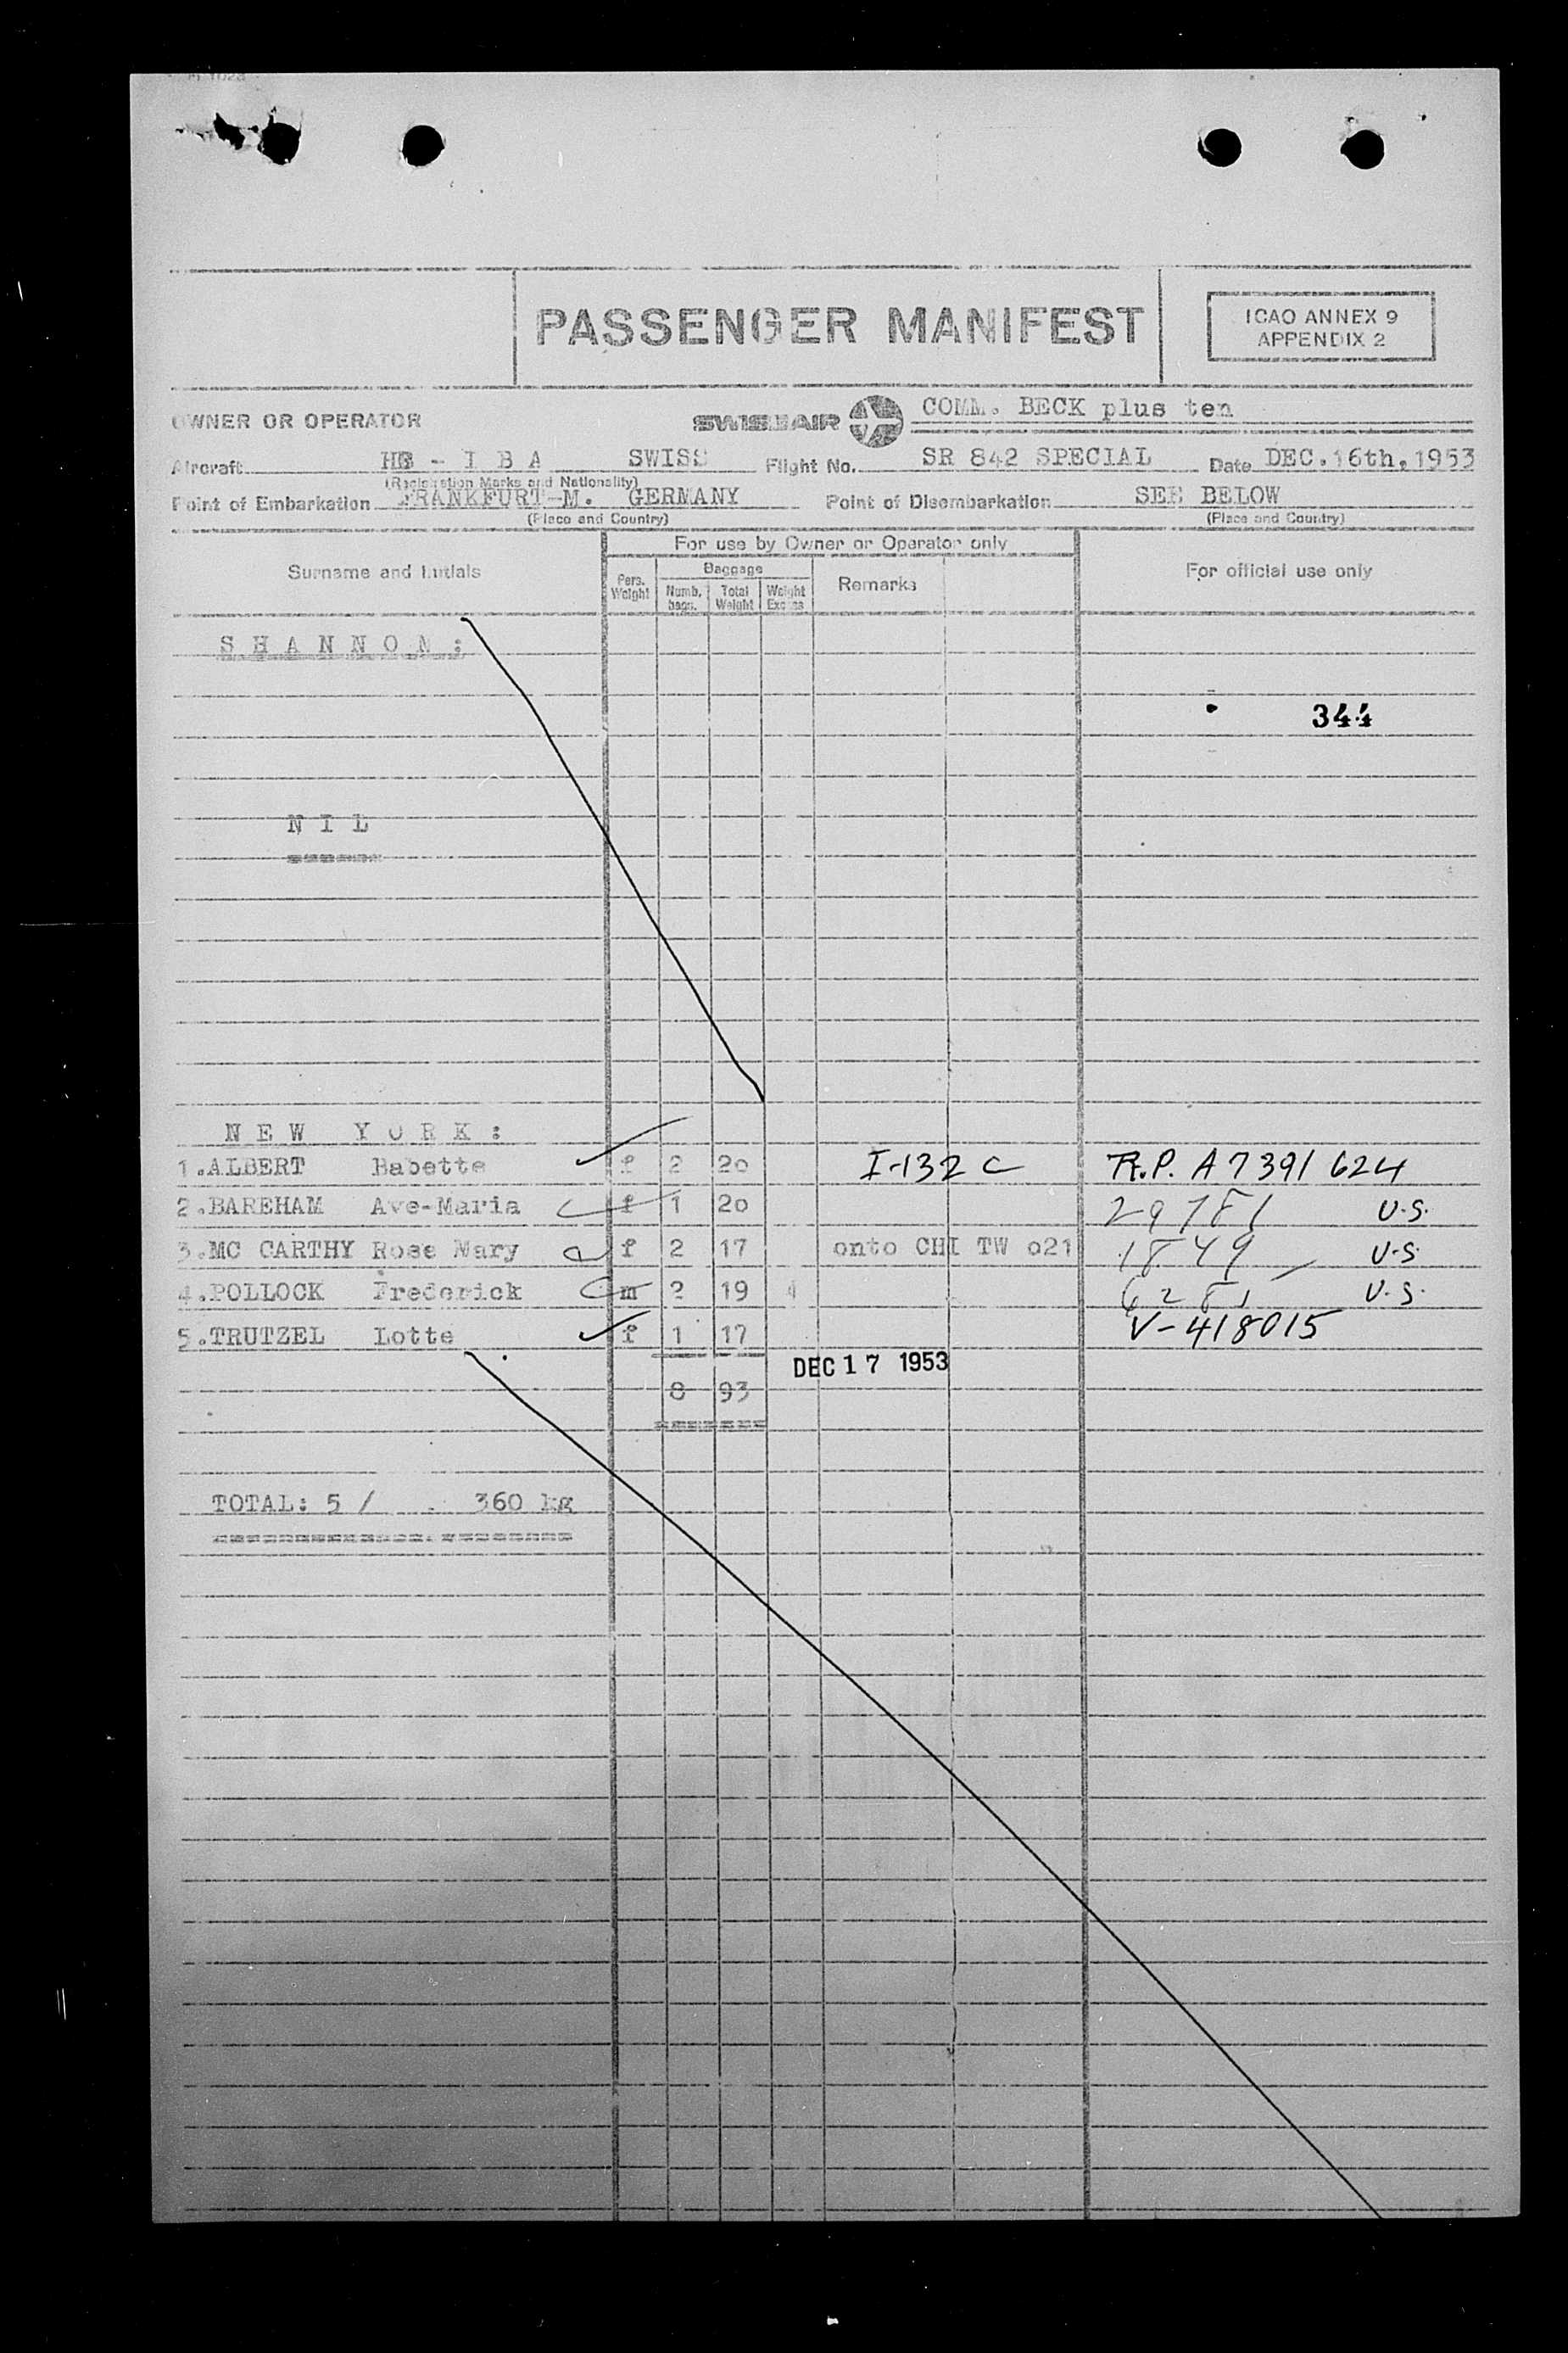 PASSENGER MANIFEST
ICAO ANNEX 9
APPENDIX 2
OWNER OR OPERATOR SWISSAIR COMM. BECK plus ten
Aircraft HB - I B A SWISS Flight No. SR 842 SPECIAL Date DEC.16th,1953
(Registration Marks and Nationality)
Point of Embarkation FRANKFURT-M. GERMANY Point of Disembarkation SEE BELOW
(Place and Country) (Place and Country)
For use by Owner or Operator only
Surname and Initials Pers. Weight Baggage Numb. bags. Total Weight Weight Excess Remarks For official use only
S H A N N O N :
344
N I L
N E W Y O R K :
1.ALBERT Babette f 2 20 I-132 C R.P. A7391624
2.BAREHAM Ave-Maria f 1 20 29781 U.S.
3.MC CARTHY Rose Mary f 2 17 onto CHI TW 021 1849 U.S.
4.POLLOCK Frederick m 2 19 U.S.
5.TRUTZEL Lotte f 1 17 V-418015
DEC 17 1953
8 93
TOTAL: 5 / 360 kg